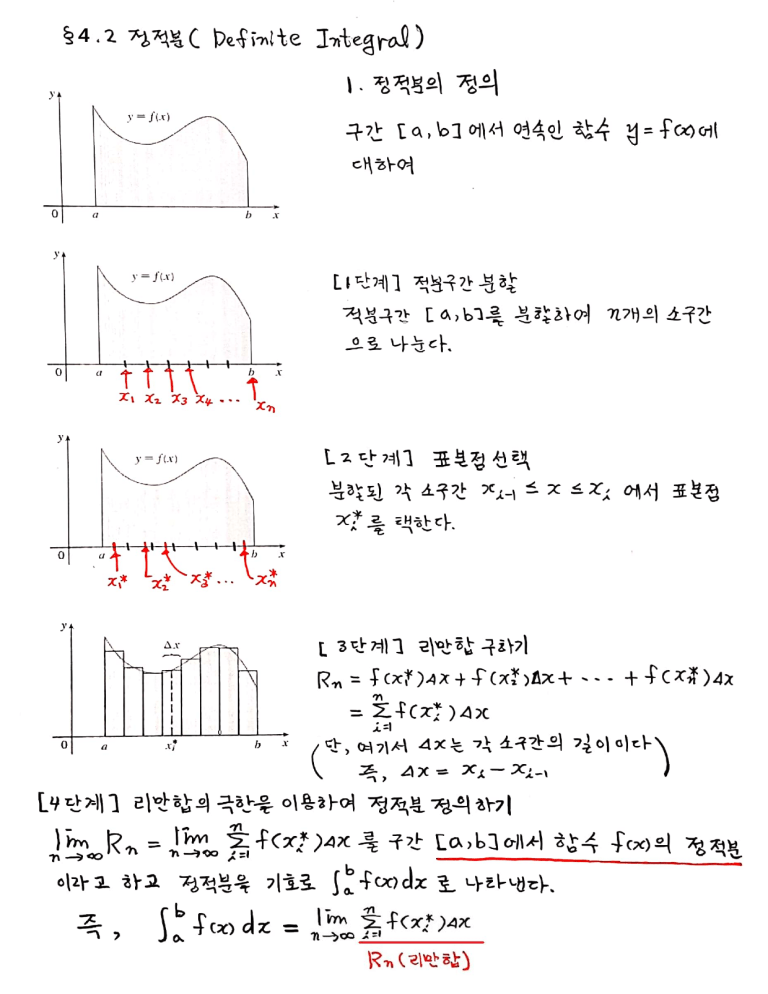 §4.2 정적분( Definite Integral )
1. 정적분의 정의
y
y = f(x)
0 a b x
구간 [a,b]에서 연속인 함수 y=f(x)에
대하여
y
y = f(x)
0 a b x
x₁ x₂ x₃ x₄ ... xₙ
[1단계] 적분구간 분할
적분구간 [a,b]를 분할하여 n개의 소구간
으로 나눈다.
y
y = f(x)
0 a b x
x₁* x₂* x₃* ... xₙ*
[2단계] 표본점 선택
분할된 각 소구간 xᵢ₋₁ ≤ x ≤ xᵢ 에서 표본점
xᵢ* 를 택한다.
y
Δx
0 a xᵢ* b x
[3단계] 리만합 구하기
Rₙ = f(x₁*)Δx + f(x₂*)Δx + --- + f(xₙ*)Δx
= Σⁿᵢ₌₁ f(xᵢ*)Δx
(단, 여기서 Δx는 각 소구간의 길이이다
즉, Δx = xᵢ - xᵢ₋₁)
[4단계] 리만합의 극한을 이용하여 정적분 정의하기
lim n→∞ Rₙ = lim n→∞ Σⁿᵢ₌₁ f(xᵢ*)Δx 를 구간 [a,b]에서 함수 f(x)의 정적분
이라고 하고 정적분을 기호로 ∫ₐᵇ f(x)dx 로 나타낸다.
즉, ∫ₐᵇ f(x)dx = lim n→∞ Σⁿᵢ₌₁ f(xᵢ*)Δx
Rₙ(리만합)